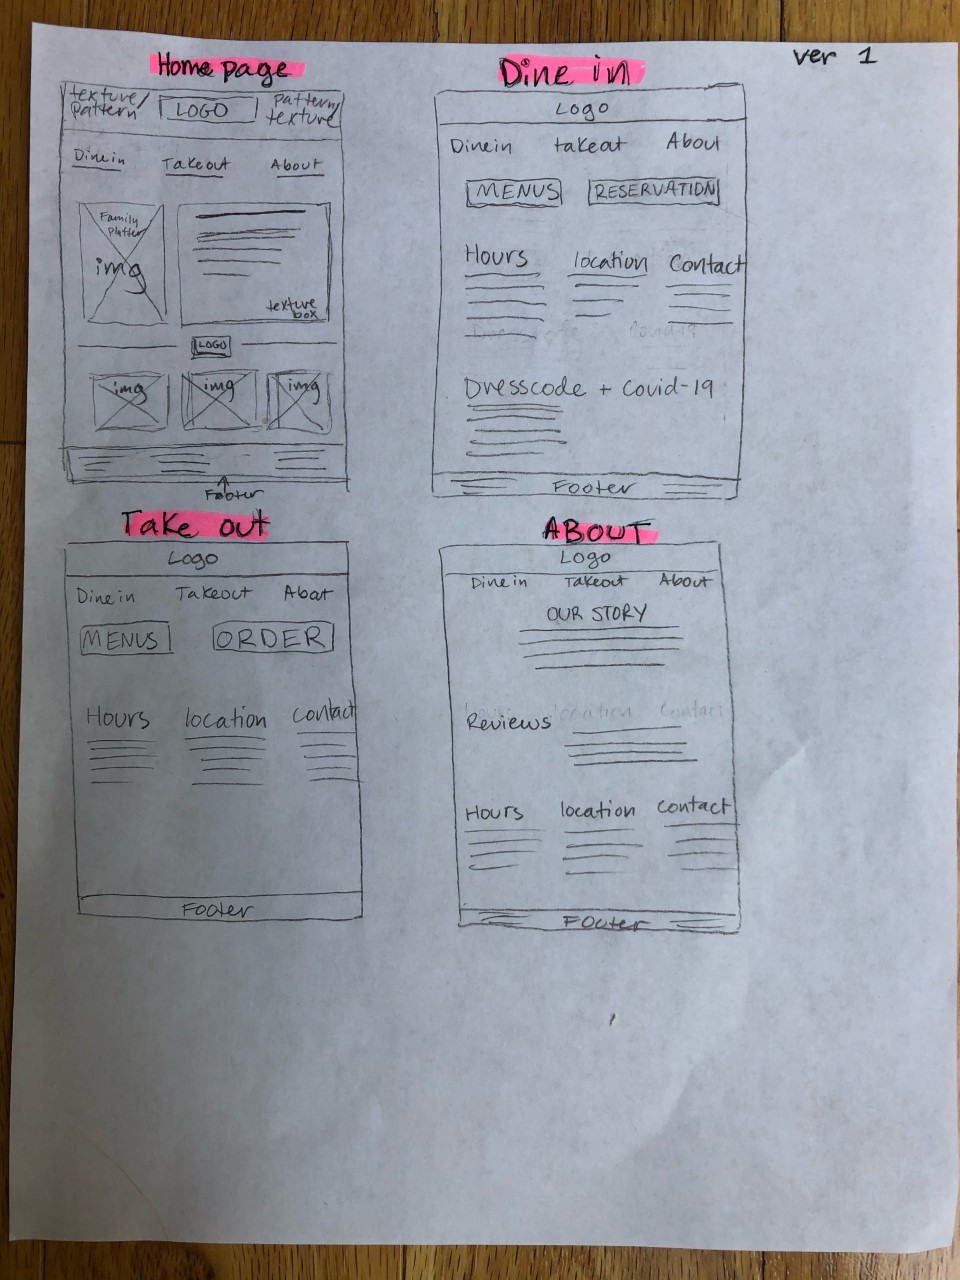 ver 1
Home page
texture/
pattern
LOGO
pattern/
texture
Dine in Takeout About
Family
Platter
img
texture
box
LOGO
img img img
Footer
Dine in
Logo
Dine in takeout About
MENUS RESERVATION
Hours location Contact
Dresscode Covid-19
Dresscode + Covid-19
Footer
Take out
Logo
Dine in Takeout About
MENUS ORDER
Hours location contact
Footer
ABOUT
Logo
Dine in Takeout About
OUR STORY
Hours location Contact
Reviews
Hours location contact
Footer